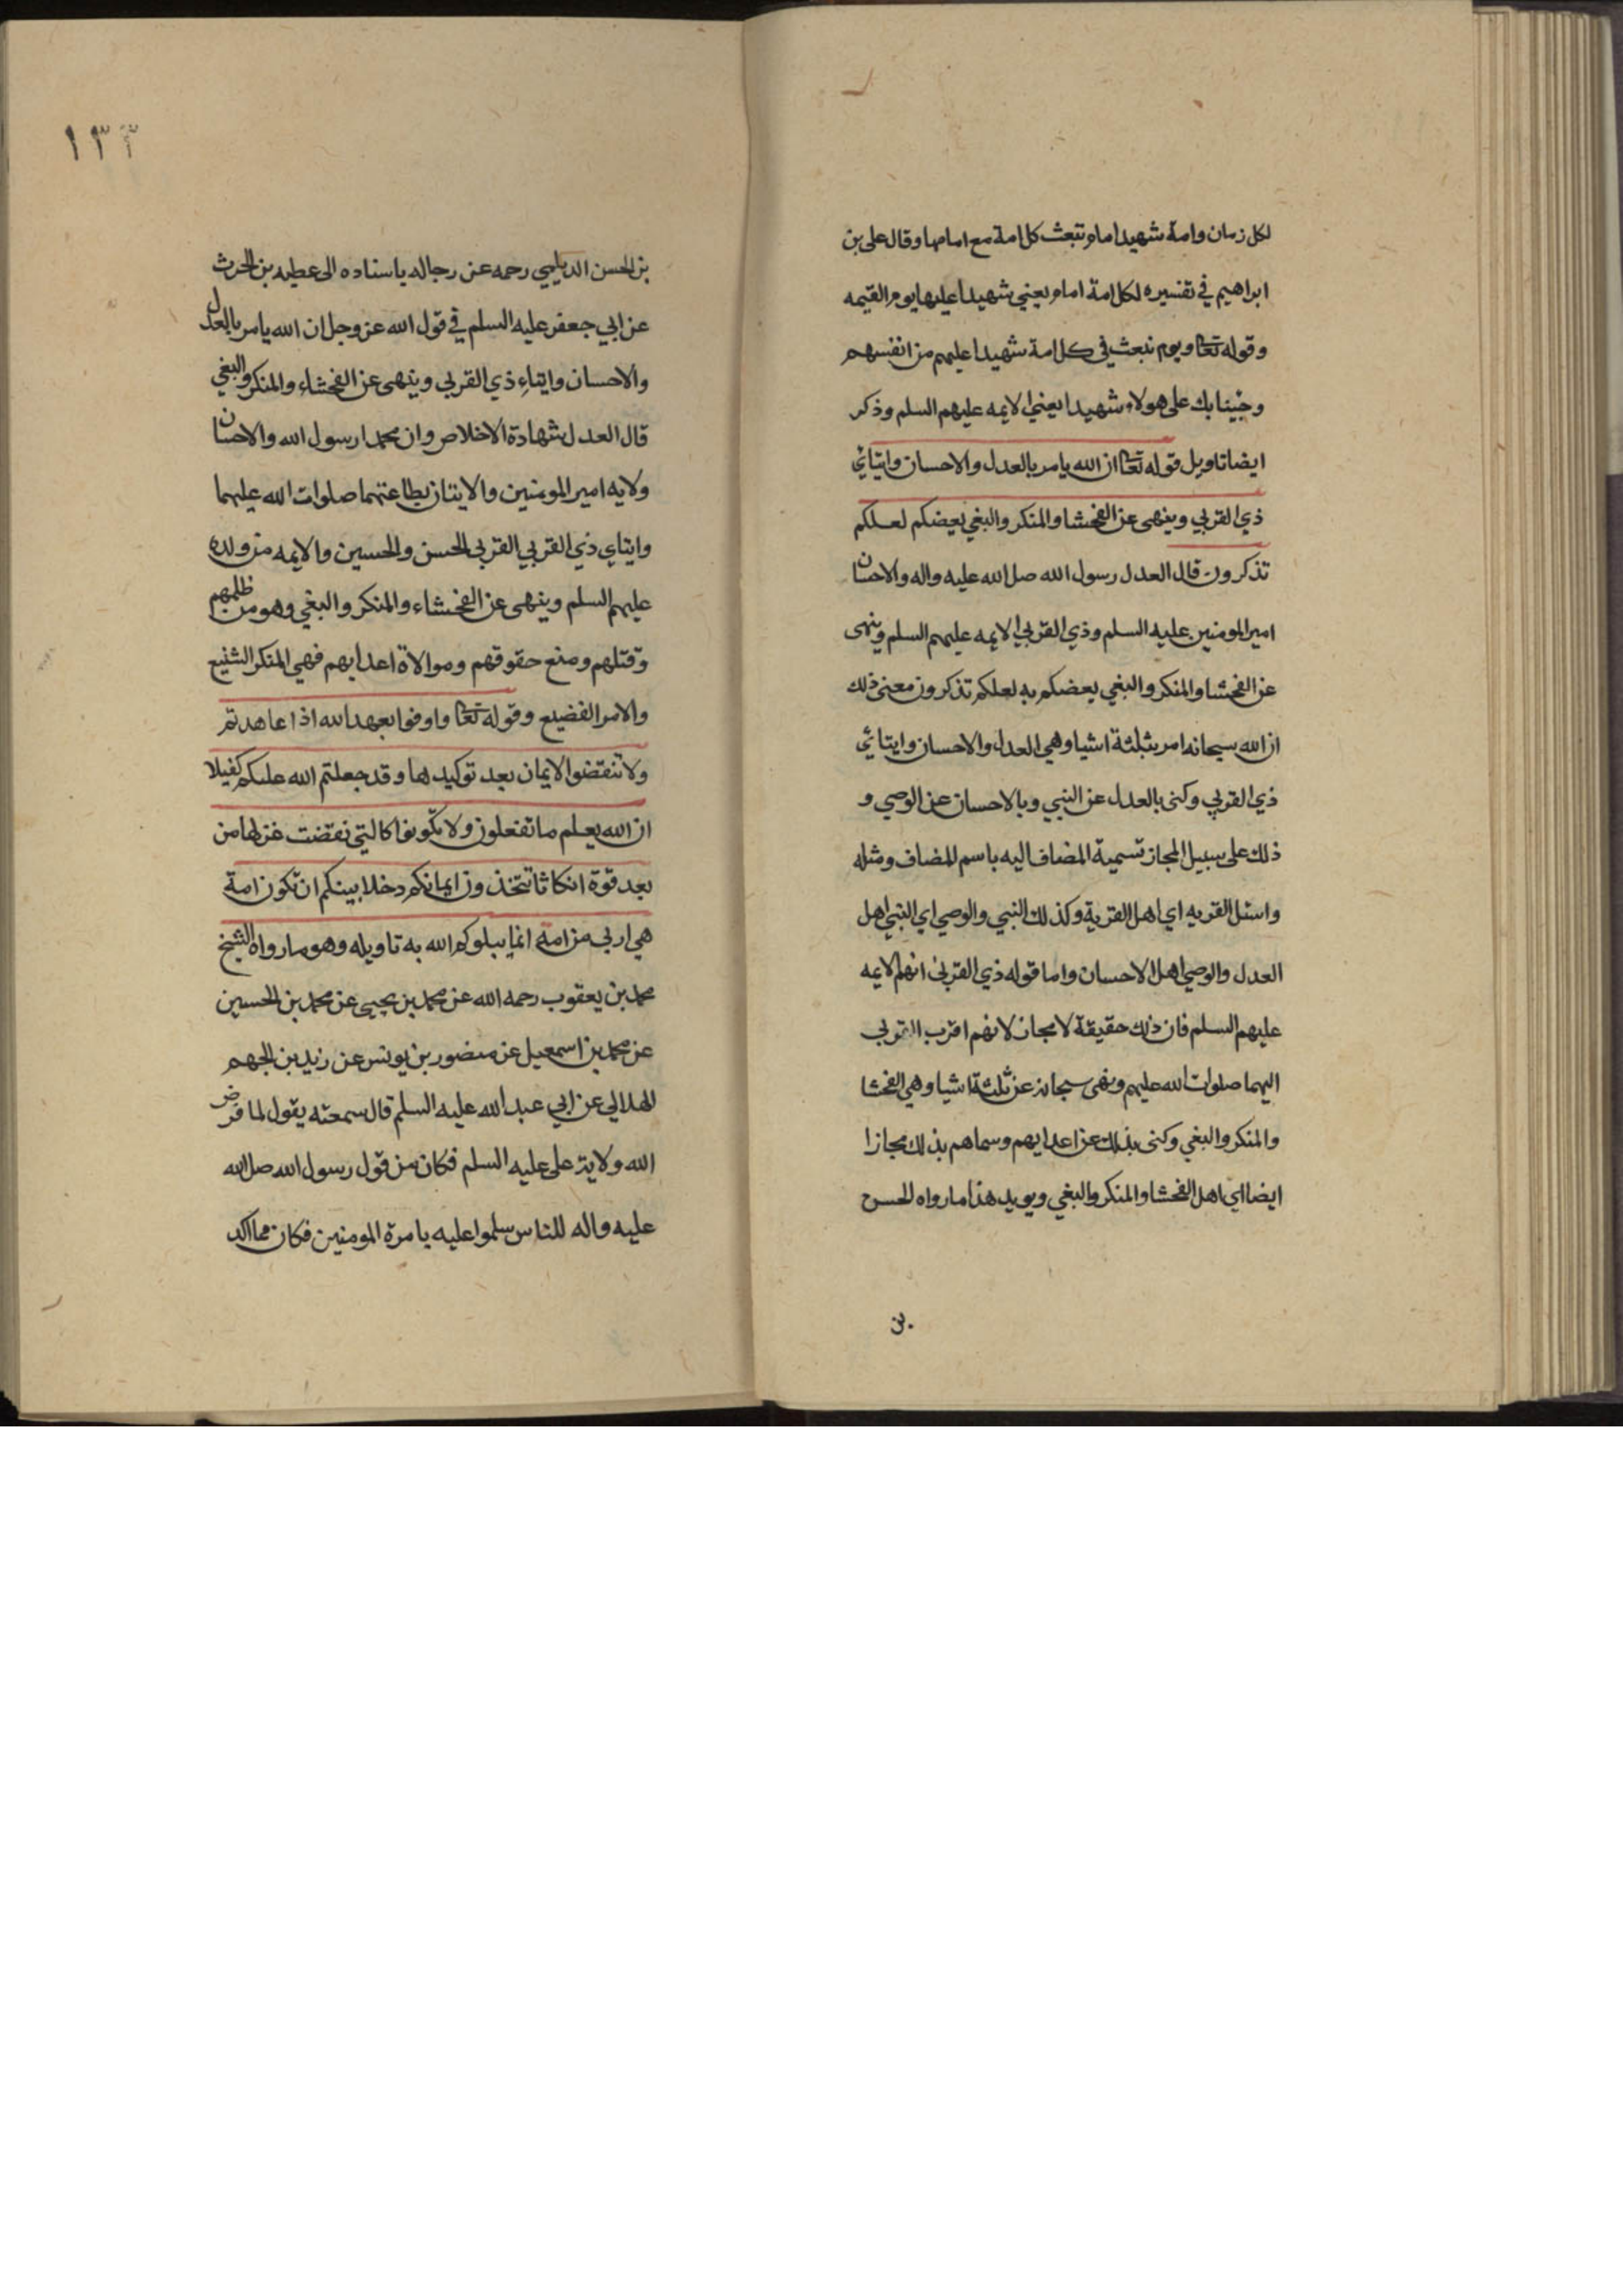 لكل زمان وامة شهيدا امام تبعث كل امة مع امامها وقال على بن
ابراهيم في تفسيره لكل امة امام يعني شهيدا عليها يوم القيمه
وقوله تعا ويوم نبعث في كل امة شهيدا عليهم من انفسهم
وجينا بك على هولاء شهيدا يعني الايمه عليهم السلم وذكر
ايضا تاويل قوله تعا ان الله يامر بالعدل والاحسان وايتائي
ذي القربي وينهى عن الفحشا والمنكر والبغي يعضكم لعلكم
تذكرون قال العدل رسول الله صل الله عليه واله والاحسان
امير المومنين عليه السلم وذي القربي الايمه عليهم السلم وينهى
عن الفحشا والمنكر والبغي يعضكم به لعلكم تذكرون معنى ذلك
ان الله سبحانه امر بثلثة اشيا وهي العدل والاحسان وايتائي
ذي القربي وكنى بالعدل عن النبي وبالاحسان عن الوصي و
ذلك على سبيل المجاز تسمية المضاف اليه باسم المضاف ومثله
واسئل القريه اي اهل القرية وكذلك النبي والوصي اي النبي اهل
العدل والوصي اهل الاحسان واما قوله ذي القربى انهم الايمه
عليهم السلم فان ذلك حقيقة لا مجاز لانهم اقرب القربي
اليهما صلوات الله عليهم ونهى سبحانه عن ثلثة اشيا وهي الفحشا
والمنكر والبغي وكنى بذلك عن اعدايهم وسماهم بذلك مجازا
ايضا اي اهل الفحشا والمنكر والبغي ويويد هذا ما رواه الحسن
بن
١٣٣
بن الحسن الديلمي رحمه عن رجاله باسناده الى عطيه بن الحرث
عن ابي جعفر عليه السلم في قول الله عز وجل ان الله يامر بالعدل
والاحسان وايتاء ذي القربي وينهى عن الفحشاء والمنكر والبغي
قال العدل شهادة الاخلاص وان محمدا رسول الله والاحسان
ولايه امير المومنين والايتان بطاعتهما صلوات الله عليهما
وايتاي ذي القربي القربي الحسن والحسين والايمه من ولده
عليهم السلم وينهى عن الفحشاء والمنكر والبغي وهو من ظلمهم
وقتلهم ومنع حقوقهم وموالاة اعدايهم فهي المنكر الشنيع
والامر الفضيع وقوله تعا واوفوا بعهد الله اذا عاهدتم
ولا تنقضوا الايمان بعد توكيدها وقد جعلتم الله عليكم كفيلا
ان الله يعلم ما تفعلون ولا تكونوا كالتي نقضت غزلها من
بعد قوة انكاثا تتخذون ايمانكم دخلا بينكم ان تكون امة
هي اربي من امة انما يبلوكم الله به تاويله وهو ما رواه الشيخ
محمد بن يعقوب رحمه الله عن محمد بن يحيى عن محمد بن الحسين
عن محمد بن اسمعيل عن منصور بن يونس عن زيد بن الجهم
الهلالي عن ابي عبد الله عليه السلم قال سمعته يقول لما فرض
الله ولاية على عليه السلم فكان من قول رسول الله صل الله
عليه واله للناس سلموا عليه بامرة المومنين فكان مما اكد